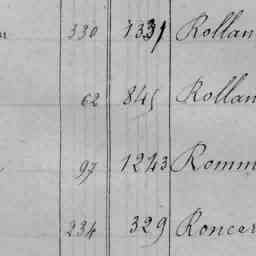 330 1331 Rollan
62 845 Rollan
97 1243 Romm
234 329 Roncer